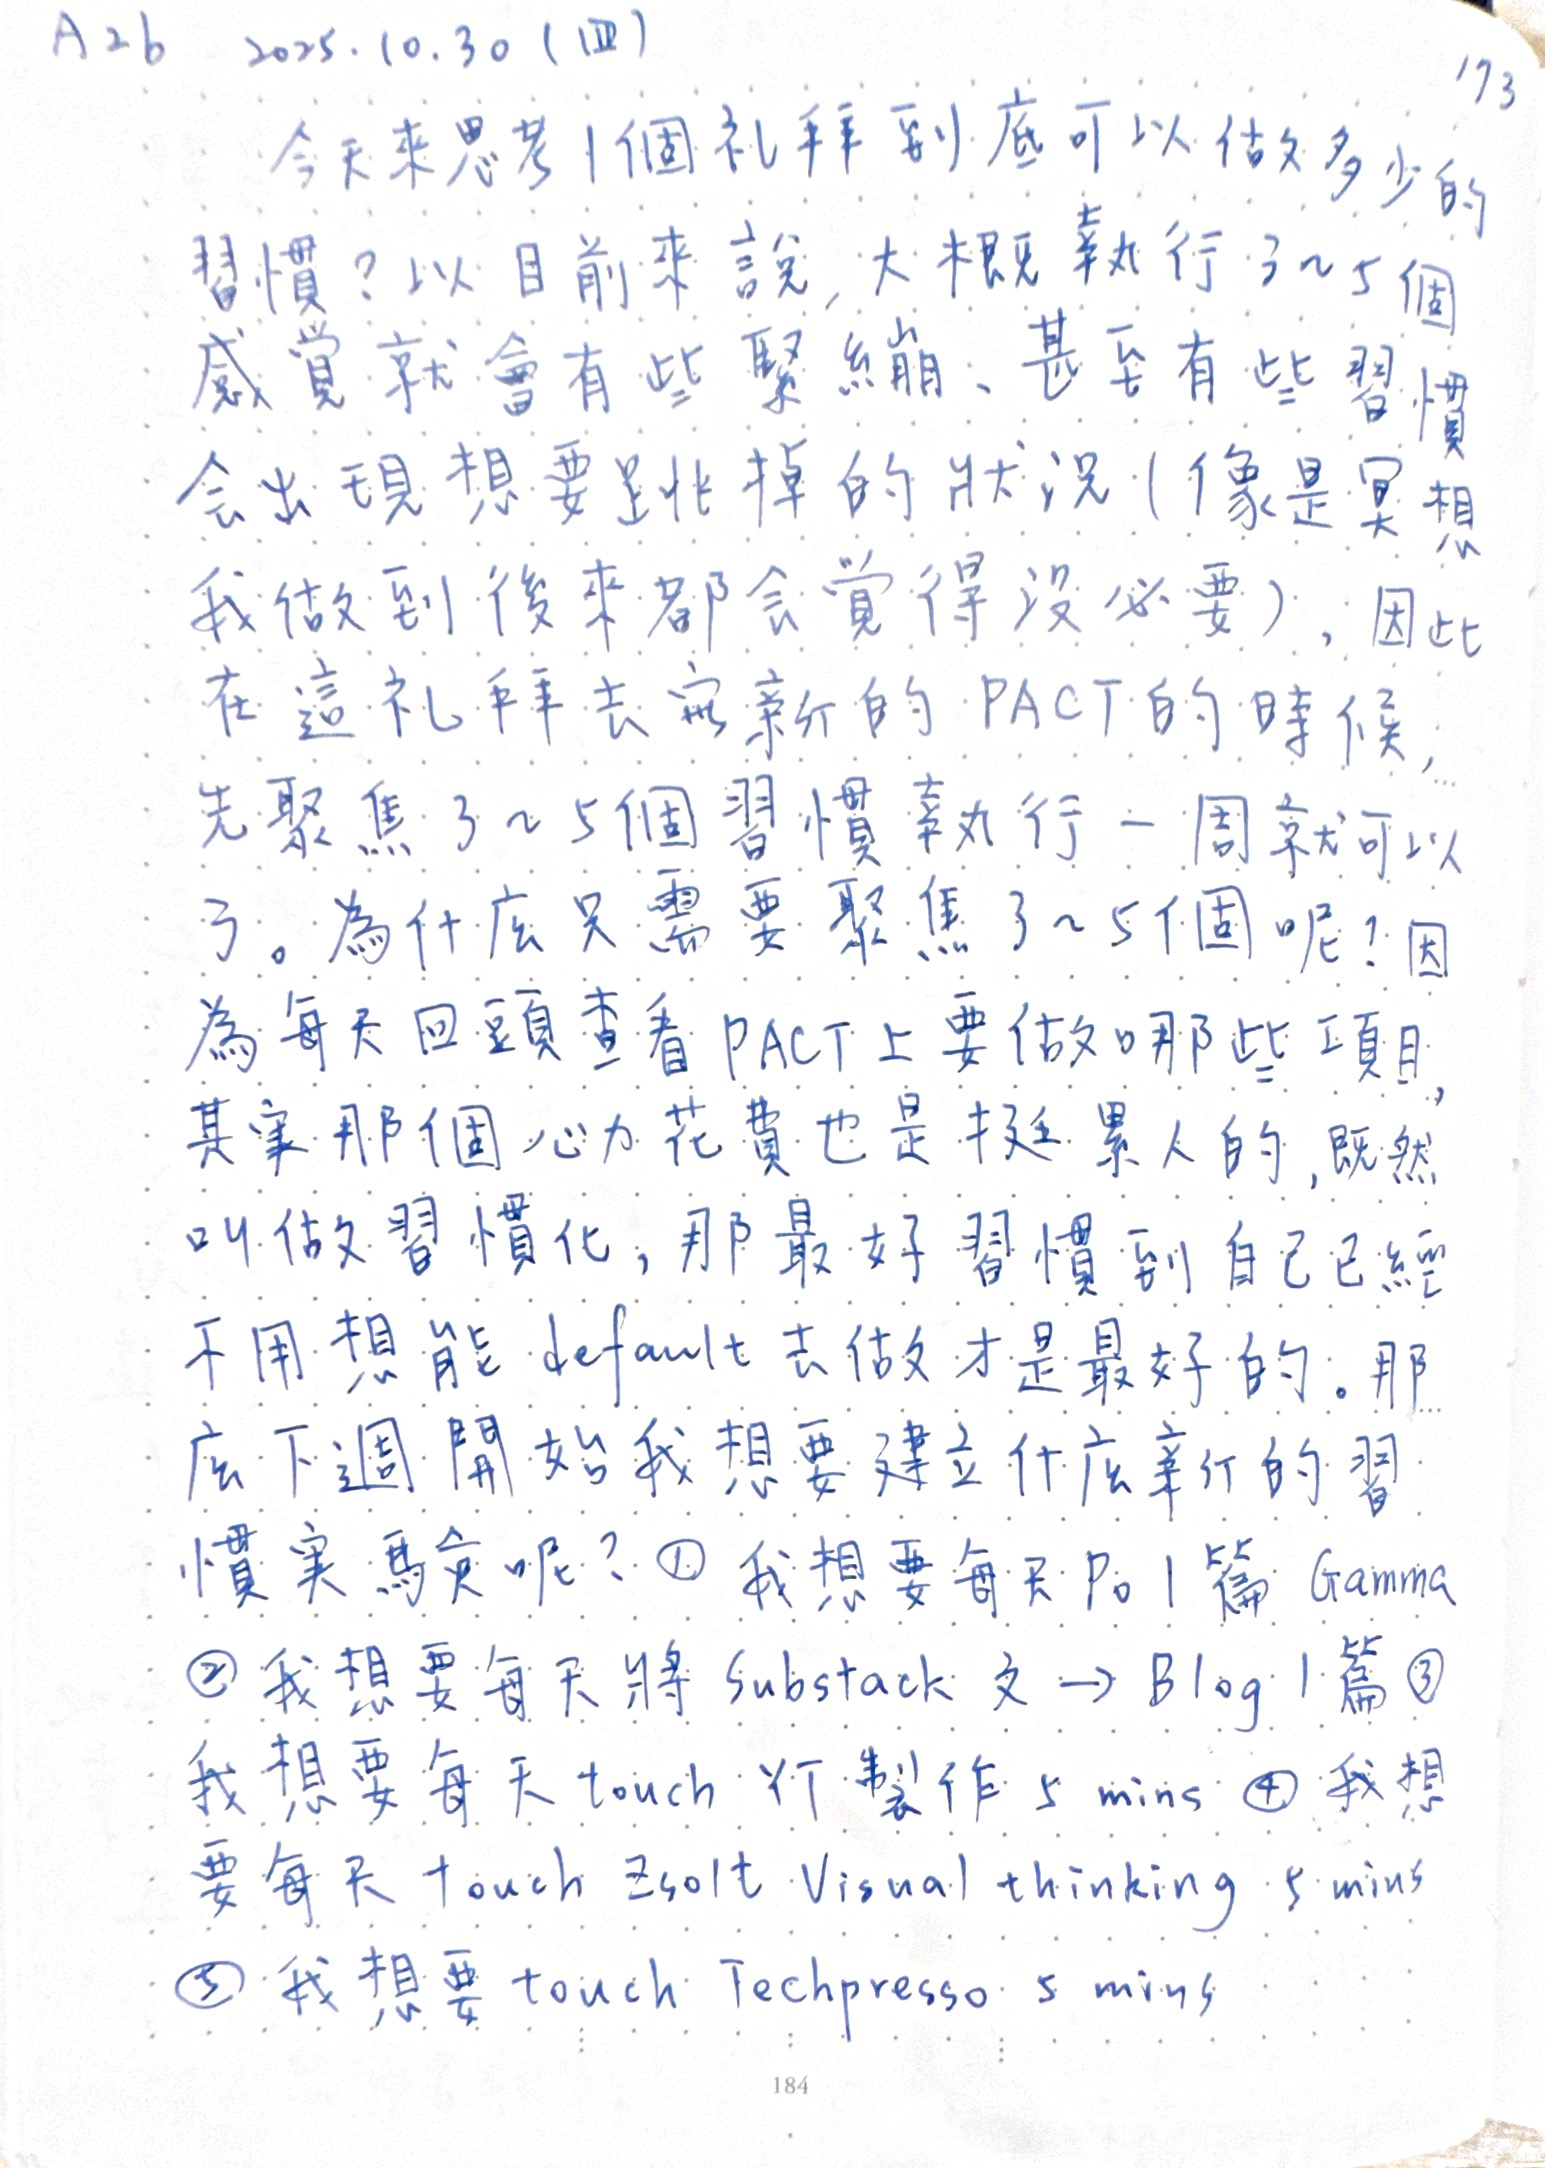 A26 2025.10.30(四)
173
今天來思考1個礼拜到底可以做多少的
習慣?以目前來說,大概執行3~5個
感覚就會有些緊繃、甚至有些習慣
会出現想要跳掉的狀況(像是冥想
我做到後來都会覚得没必要),因此
在這礼拜去定新的PACT的時候,
先聚焦3~5個習慣執行一周就可以
了。為什庅只需要聚焦3~5個呢?因
為每天回頭查看PACT上要做哪些項目,
其実那個心力花費也是挺累人的,既然
叫做習慣化,那最好習慣到自己已經
不用想能default去做才是最好的。那
庅下週開始我想要建立什庅新的習
慣実驗呢?①我想要每天Po1篇 Gamma
②我想要每天將 Substack 文→Blog 1篇③
我想要每天 touch YT製作 5 mins ④我想
要每天 touch Zsolt Visual thinking 5 mins
⑤我想要 touch Techpresso 5 mins
184